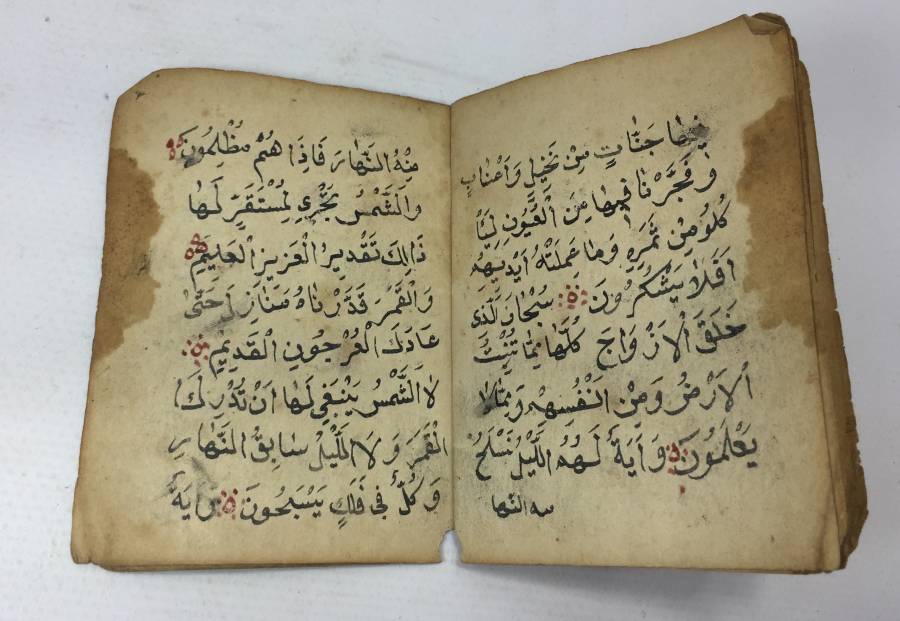 فيها جَنَّاتٍ مِنْ نَخِيلٍ وَاَعْنابٍ
وَفَجَّرْنَا فيها مِنَ الْعُيُونِ لِيَأْ
كُلُوُ مِنْ ثَمَرِهِ وَما عَمِلَتْهُ اَيْديهِهْ
اَفَلا يَشْكُرُونَ سُبْحانَ الَّذى
خَلَقَ الْاَزْوَاجَ كُلَّها مِمَّا تُنْبِتُ
الْاَرْضُ وَمِنْ اَنْفُسِهِمْ وَمِمَّا لا
يَعْلَمُونَ وَاَيَةٌ لَهُمُ اللَّيْلُ نَسْلَخُ
منه النها
مِنْهُ النَّهارَ فَاِذَا هُمْ مُظْلِمُونَ
وَالشَّمْسُ تَجْرِي لِمُسْتَقَرٍّ لَها
ذَالِكَ تَقْدِيرُ الْعَزيزِ الْعَليمِ
وَالْقَمَرَ قَدَّرْنَاهُ مَنَازِلَ حَتّى
عَادَكَ الْعُرْجُونِ الْقَدِيمِ
لاَ الشَّمْسُ يَنْبَغى لَها اَنْ تُدْرِكَ
الْقَمَرَ وَلاَ الَّيْلُ سَابِقُ النَّهَارِ
وَكُلٌّ فى فَلَكٍ يَسْبَحُونَ وَايَةٌ